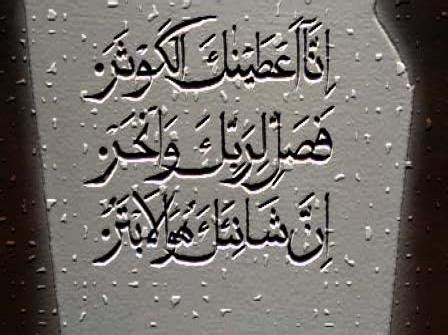 إِنَّآ أَعْطَيْنٰكَ الْكَوْثَرَ
فَصَلِّ لِرَبِّكَ وَانْحَرْ
إِنَّ شَانِئَكَ هُوَ الْأَبْتَرُ